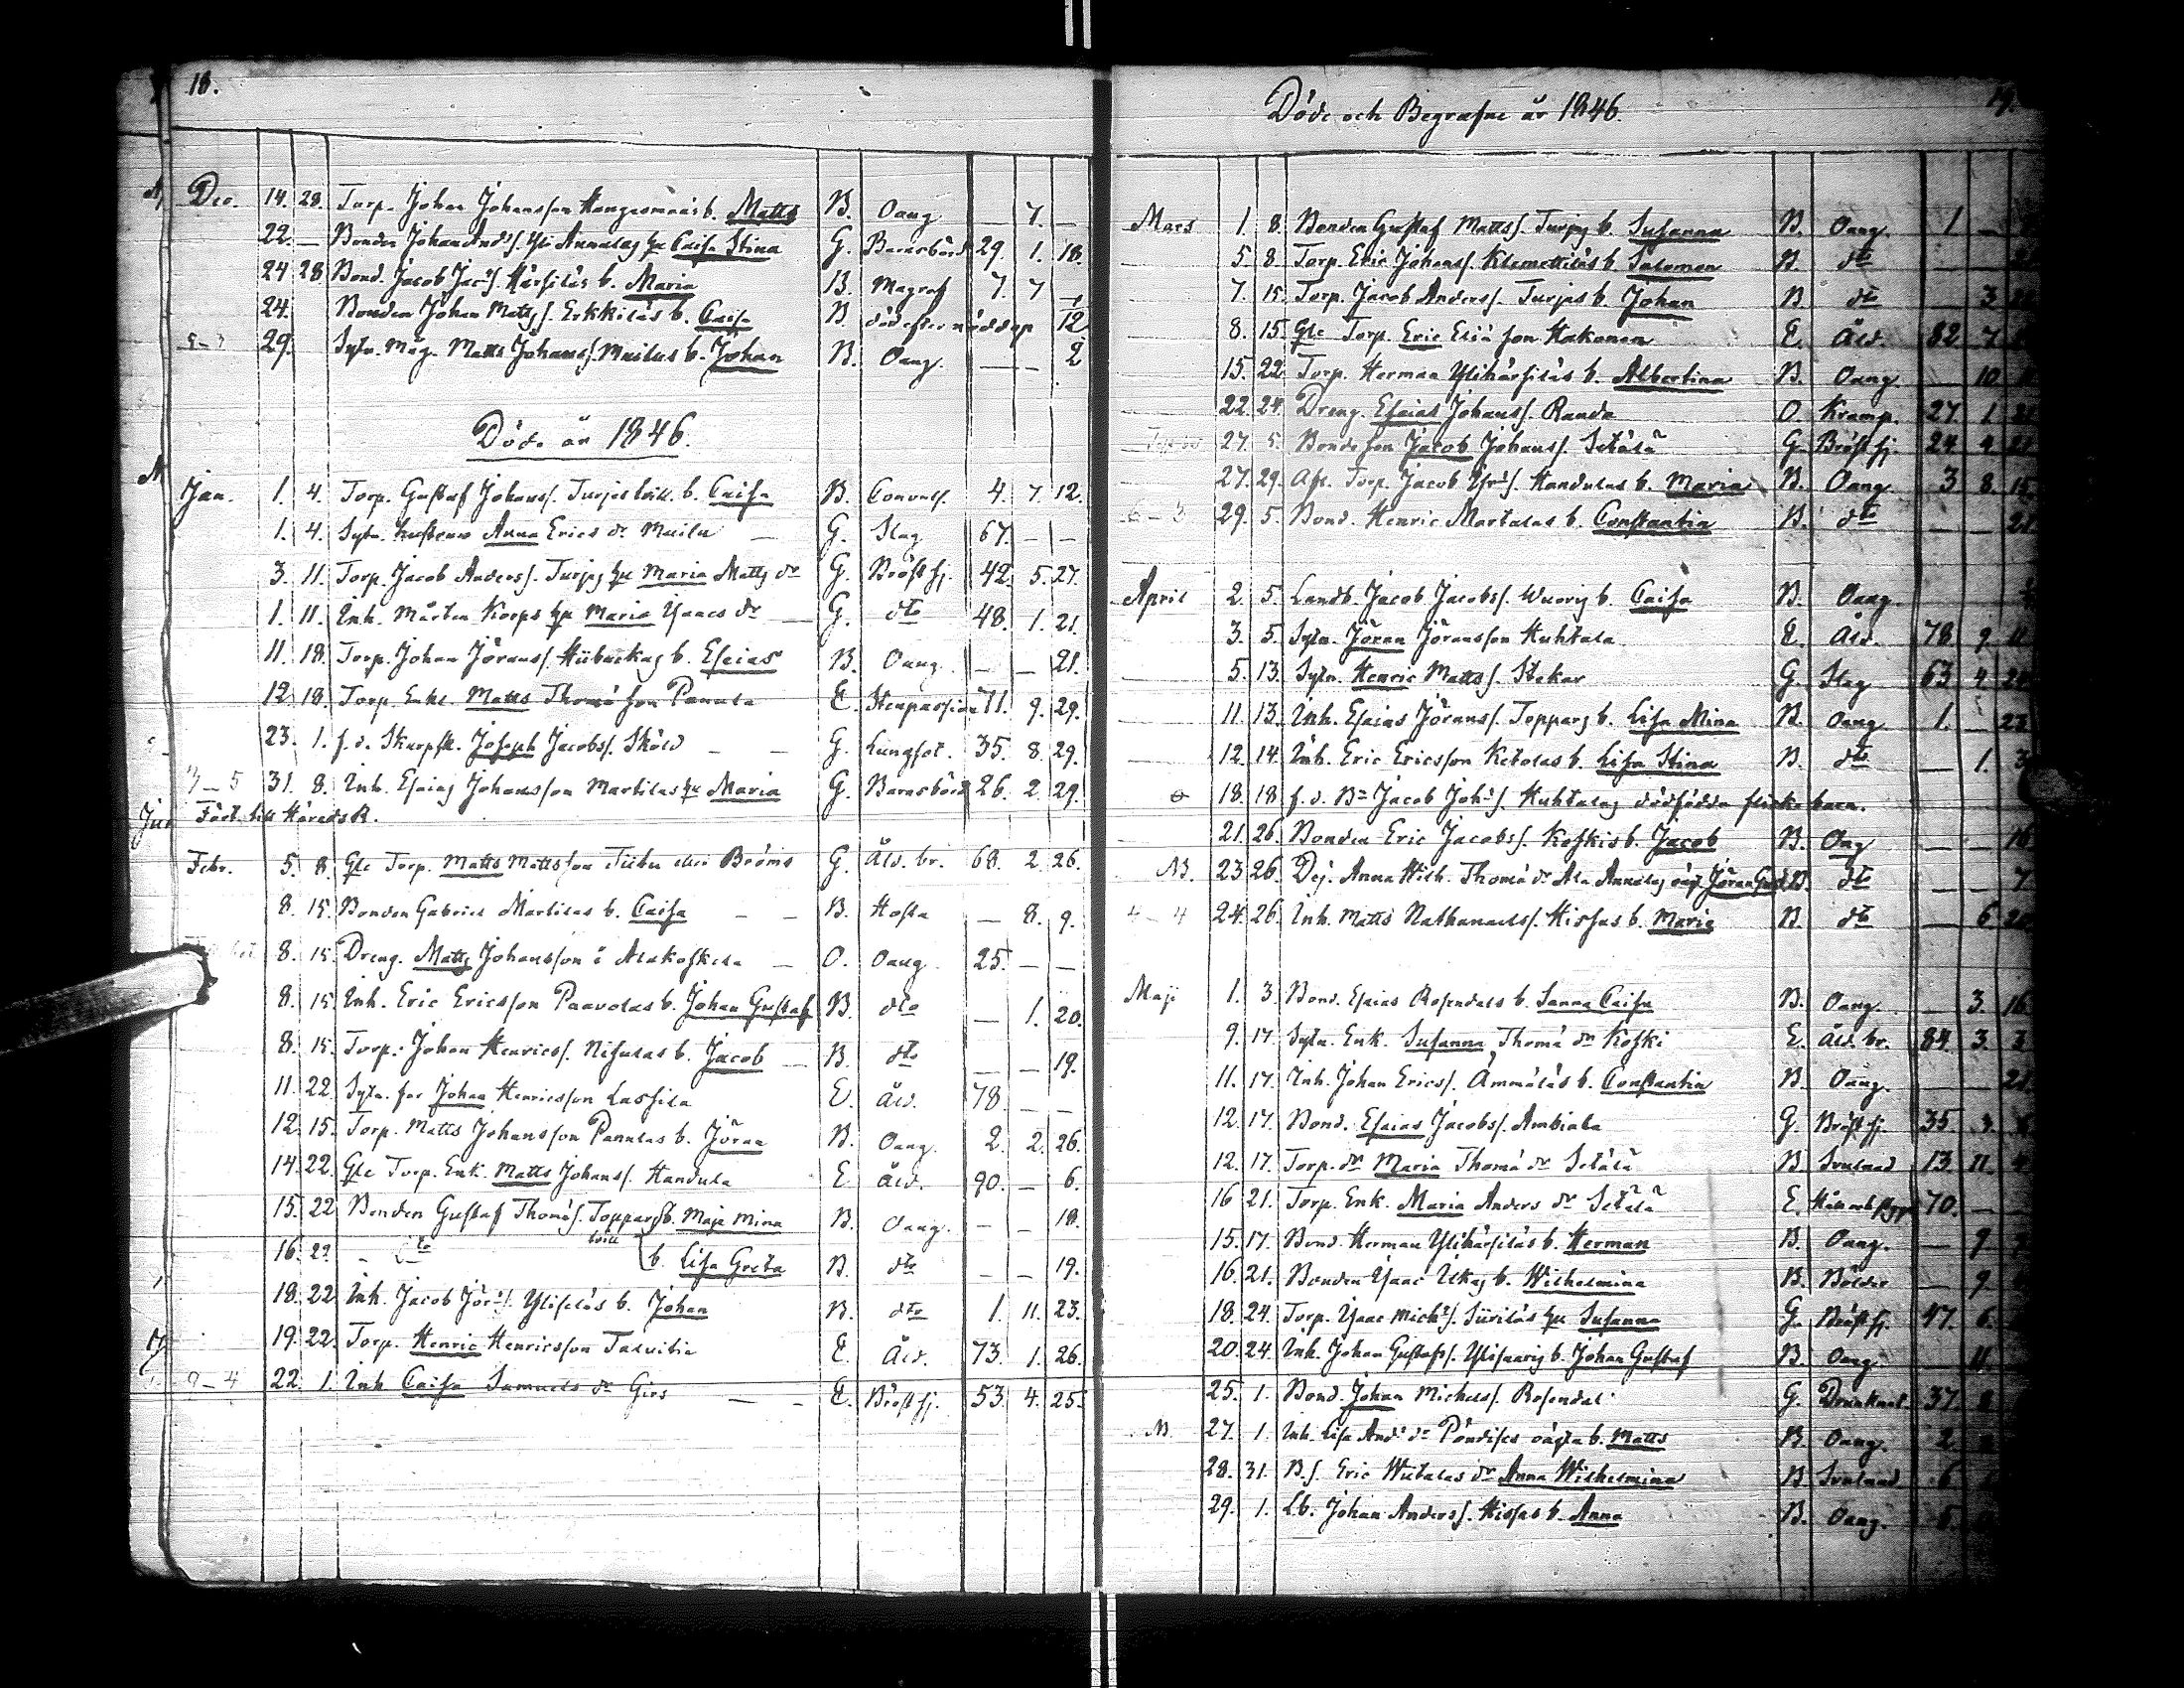 18.
Dec. 14. 28. Torp. Johan Johansson Kangasmaas b. Matts B. Oang — 7. —
22. — Bonden Johan And:s s. Yli Annalas hu Caisa Stina G. Barnsbörd 29. 1. 18.
24 28 Bond. Jacob Jac:s s. Härsiläs b. Maria B. Magref 7. 7
24. Bonden Johan Matts s. Erkkiläs b. Caisa B. död efter nöddop 1/12
5–3 29. Sytn. Måg. Matts Johans s. Muilus b. Johan B. Oang. — — 2
Döde år 1846.
Jan. 1. 4. Torp. Gustaf Johans s. Turjas tvill. b. Caisa B. Convuls. 4. 7. 12.
1. 4. Sytn. hustrun Anna Erics dr Muilu — G. Slag 67. — —
3. 11. Torp. Jacob Anders s. Turjas hu Maria Matts dr G. Bröstsj. 42. 5. 27.
1. 11. Inh. Mårten Korps hu Maria Isaacs dr G. dto 48. 1. 21.
11. 18. Torp. Johan Jörans s. b. Esaias B. Oang. — — 21.
12. 18. Torp. Enkl. Matts Thomä son Panula E. Stenpassion 71. 9. 29.
23. 1. f. d. Skarpsk. Joseph Jacobs s. Sköld — — G. Lungsot. 35. 8. 29.
3–5 31. 8. Inh. Esaias Johansson Martilas hu Maria G. Barnsbörd 26. 2. 29.
Förd. till Härads R.
Febr. 5. 8. Gle Torp. Matts Mattsson eller Bröms G. Åld. br. 68. 2. 26.
8. 15. Bonden Gabriel Martilas b. Caisa — — B. Hosta — 8. 9.
8. 15. Dreng. Matts Johansson i Alakoskela — O. Oang. 25. — —
8. 15. Inh. Eric Ericsson Paavolas b. Johan Gustaf B. dto — 1. 20.
8. 15. Torp. Johan Henrics s. Nisulas b. Jacob — B. dto — — 19.
11. 22. Sytn. far Johan Henricsson Lassila E. Åld. 78. — —
12. 15. Torp. Matts Johansson Panulas b. Jöran B. Oang. 2. 2. 26.
14. 22. Gle Torp. Enk. Matts Johans s. Handula E. Åld. 90. — 6.
15. 22 Bonden Gustaf Thomä s. Toppars b. Maja Mina B. Oang. — — 18.
16. 22 — dto tvill b. Lisa Greta B. dto — — 19.
18. 22 Inh. Jacob Jör:s s. Yliseläs b. Johan B. dto 1. 11. 23.
19. 22. Torp. Henric Henricsson Talvitie E. Åld. 73. 1. 26.
9–4 22. 1. Inh. Caisa Samuels dr Girs — — E. Bröstsj. 53. 4. 25.
Döde och Begrafne år 1846.
19.
Mars 1. 8. Bonden Gustaf Matts s. Turjas b. Susanna B. Oang. 1 —
5. 8. Torp. Eric Johans s. Klemettiläs b. Salomon B. dto
7. 15. Torp. Jacob Anders s. Turjas b. Johan B. dto 3
8. 15. Gle Torp. Eric Eliä son Hakonen E. Åld. 82 7
15. 22. Torp. Herman Ylihärsiläs b. Albertina B. Oang — 10
22. 24. Dreng. Esaias Johans s. Randa O. Kramp. 27. 1.
27. 5. Bonde son Jacob Johans s. Setälä G. Bröstsj. 24 4
27. 29. Afl. Torp. Jacob s. Handulas b. Maria B. Oang. 3 8. 15.
6–3 29. 5. Bond. Henric Martalas b. Constantin B. dto — —
April 2. 5. Landb. Jacob Jacobs s. Wuoris b. Caisa B. Oang.
3. 5. Sytn. Jöran Jöransson Huhtala E. Åld. 78. 9. 11
5. 13. Sytn. Henric Matts s. Stekar G. Slag 63 4
11. 13. Inh. Esaias Jörans s. Toppars b. Lisa Mina B. Oang 1. — 23.
12. 14. Inh. Eric Ericsson Ketolas b. Lisa Stina B. dto — 1. 3
18. 18 f. d. Bn Jacob Joh:s s. Huhtalas dödfödda flickebarn.
21. 26. Bonden Eric Jacobs s. Koskis b. Jacob B. Oag — — 16
23 26. Pig. Anna Wilh. Thomä dr Ala Annalas oägt. Jöran Gust. B. dto — — 7
4–4 24. 26. Inh. Matts Nathanaels s. Hissas b. Maria B. dto — 6.
Maji 1. 3. Bond. Esaias Rosendals b. Sanna Caisa B. Oang. 3. 16
9. 17. Sytn. Enk. Susanna Thomä dr Koski E. Åld. br. 84. 3. 3
11. 17. Inh. Johan Erics s. Ämmäläs b. Constantin B. Oang. — —
12. 17. Bond. Esaias Jacobs s. Ambiala G. Bröstsj. 35
12. 17. Torp. dr Maria Thomä dr Setälä B Svulnad 13. 11. 4
16 21. Torp. Enk. Maria Anders dr Setälä E. 70. —
15. 17. Bond. Herman Ylihärsiläs b. Herman B. Oang. — 9
16. 21. Bonden Isaac b. Wilhelmina B. Bölder — 9
18. 24. Torp. Isaac Mich:s s. Siiriläs hu Susanna G. Bröstsj. 47. 6.
20. 24. Inh. Johan Gustafs s. Ylisaaris b. Johan Gustaf B. Oang — 11.
25. 1. Bond. Johan Michels s. Rosendal G. Drunknat. 37. 8
27. 1. Inh. Lisa And:s dr oägta b. Matts B. Oang. 2.
28. 31. B.s. Eric Wiitalas dr Anna Wilhelmina B Svulnad 6
29. 1. Lb. Johan Anders s. Hissas b. Anna B. Oang. 5.